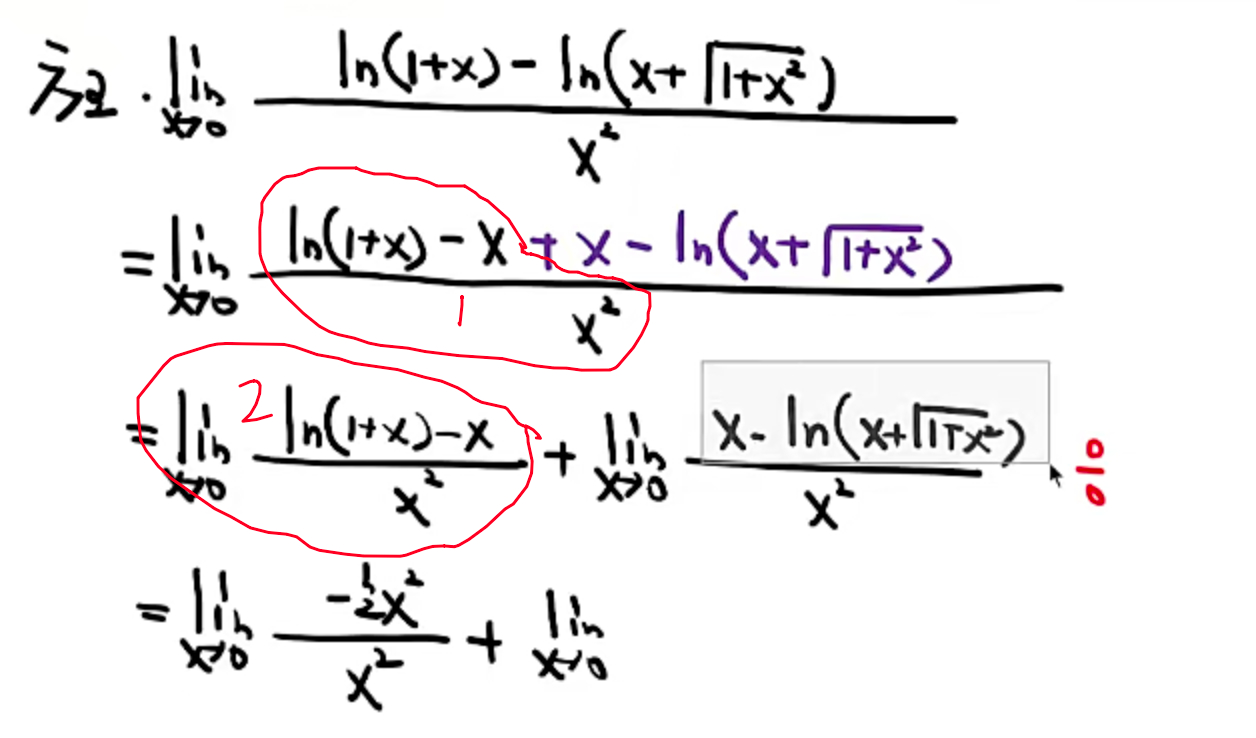 方法2. lim x→0 (ln(1+x) - ln(x+√(1+x²))) / x²
= lim x→0 (ln(1+x) - x + x - ln(x+√(1+x²))) / x²
1
2
= lim x→0 (ln(1+x) - x) / x² + lim x→0 (x - ln(x+√(1+x²))) / x² 0/0
= lim x→0 (-½x²) / x² + lim x→0